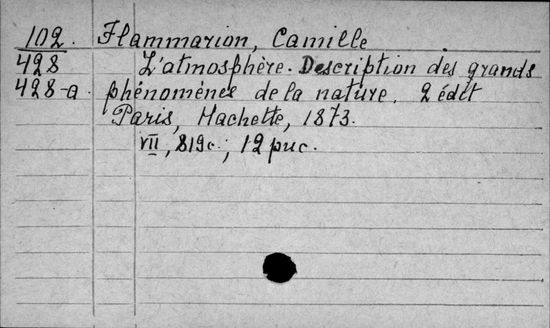 102. Flammarion, Camille
428 L'atmosphère. Description des grands
428-a. phénomènes de la nature. 2 édit
Paris, Hachette, 1873.
VII, 819c.; 12 рис.